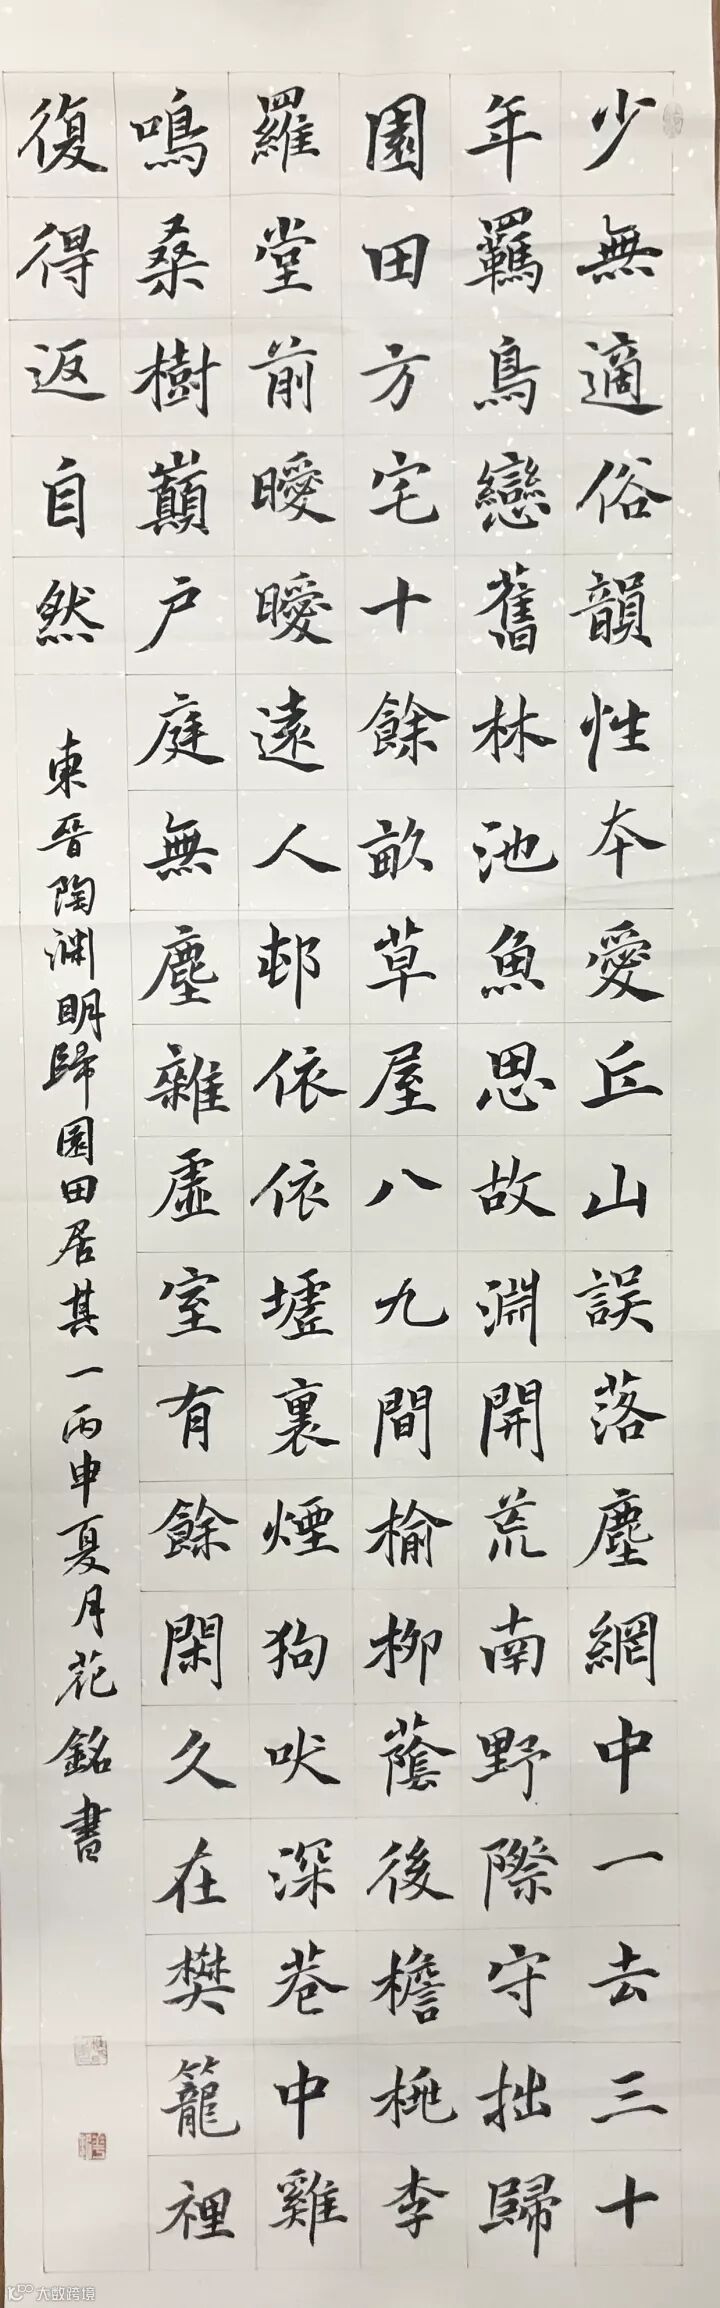 少無適俗韻性本愛丘山誤落塵網中一去三十
年羈鳥戀舊林池魚思故淵開荒南野際守拙歸
園田方宅十餘畝草屋八九間榆柳蔭後檐桃李
羅堂前曖曖遠人邨依依墟裏煙狗吠深巷中雞
鳴桑樹巔户庭無塵雜虛室有餘閑久在樊籠裡
復得返自然
東晉陶淵明歸園田居其一丙申夏月花銘書
大数跨境